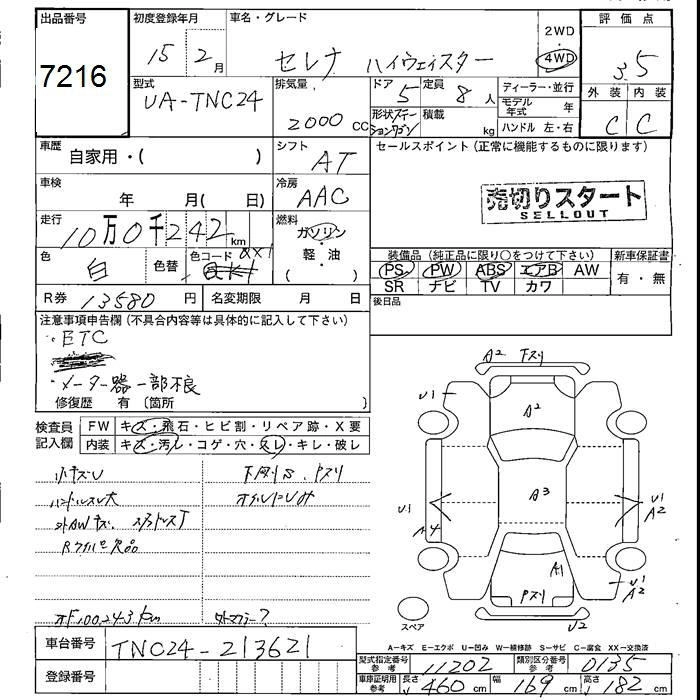 出品番号 初度登録年月 車名・グレード 評価点
7216
15 2月 セレナ ハイウェイスター 2WD 4WD 3.5
型式 排気量 ドア 定員 ディーラー・並行 外装 内装
UA-TNC24 2000 CC 5 8人 モデル年式 年 C C
形状 ステーションワゴン 積載 kg ハンドル 左・右
車歴 自家用・( ) シフト AT セールスポイント(正常に機能するものに限ります)
車検 年 月( 日) 冷房 AAC 売切りスタート
SELLOUT
走行 10万0千242km 燃料 ガソリン・軽・油 ( )
色 白 色替 色コード QX1
装備品(純正品に限り○をつけて下さい) 新車保証書
PS PW ABS エアB AW 有・無
SR ナビ TV カワ
R券 13580円 名変期限 月 日 後日品
注意事項申告欄(不具合内容等は具体的に記入して下さい)
・ETC
・メーター器一部不良
修復歴 有〔箇所 〕
検査員記入欄 FW キズ・飛石・ヒビ割・リペア跡・X要
内装 キズ・汚レ・コゲ・穴・スレ・キレ・破レ
小キズU
ハンドルスレ大
Rワイパー欠品
オF100,243km
車台番号 TNC24-213621
登録番号
A2 下スリ
U1 A2
A3
U1 A4 U1 A2
A1 U1 A2
Pスリ
U2
スペア
A-キズ E-エクボ U-凹み W-補修跡 S-サビ C-腐食 XX-交換済
型式指定番号 参考 11202 類別区分番号 参考 0135
車庫証明用 参考 長さ 460cm 幅 169cm 高さ 182cm